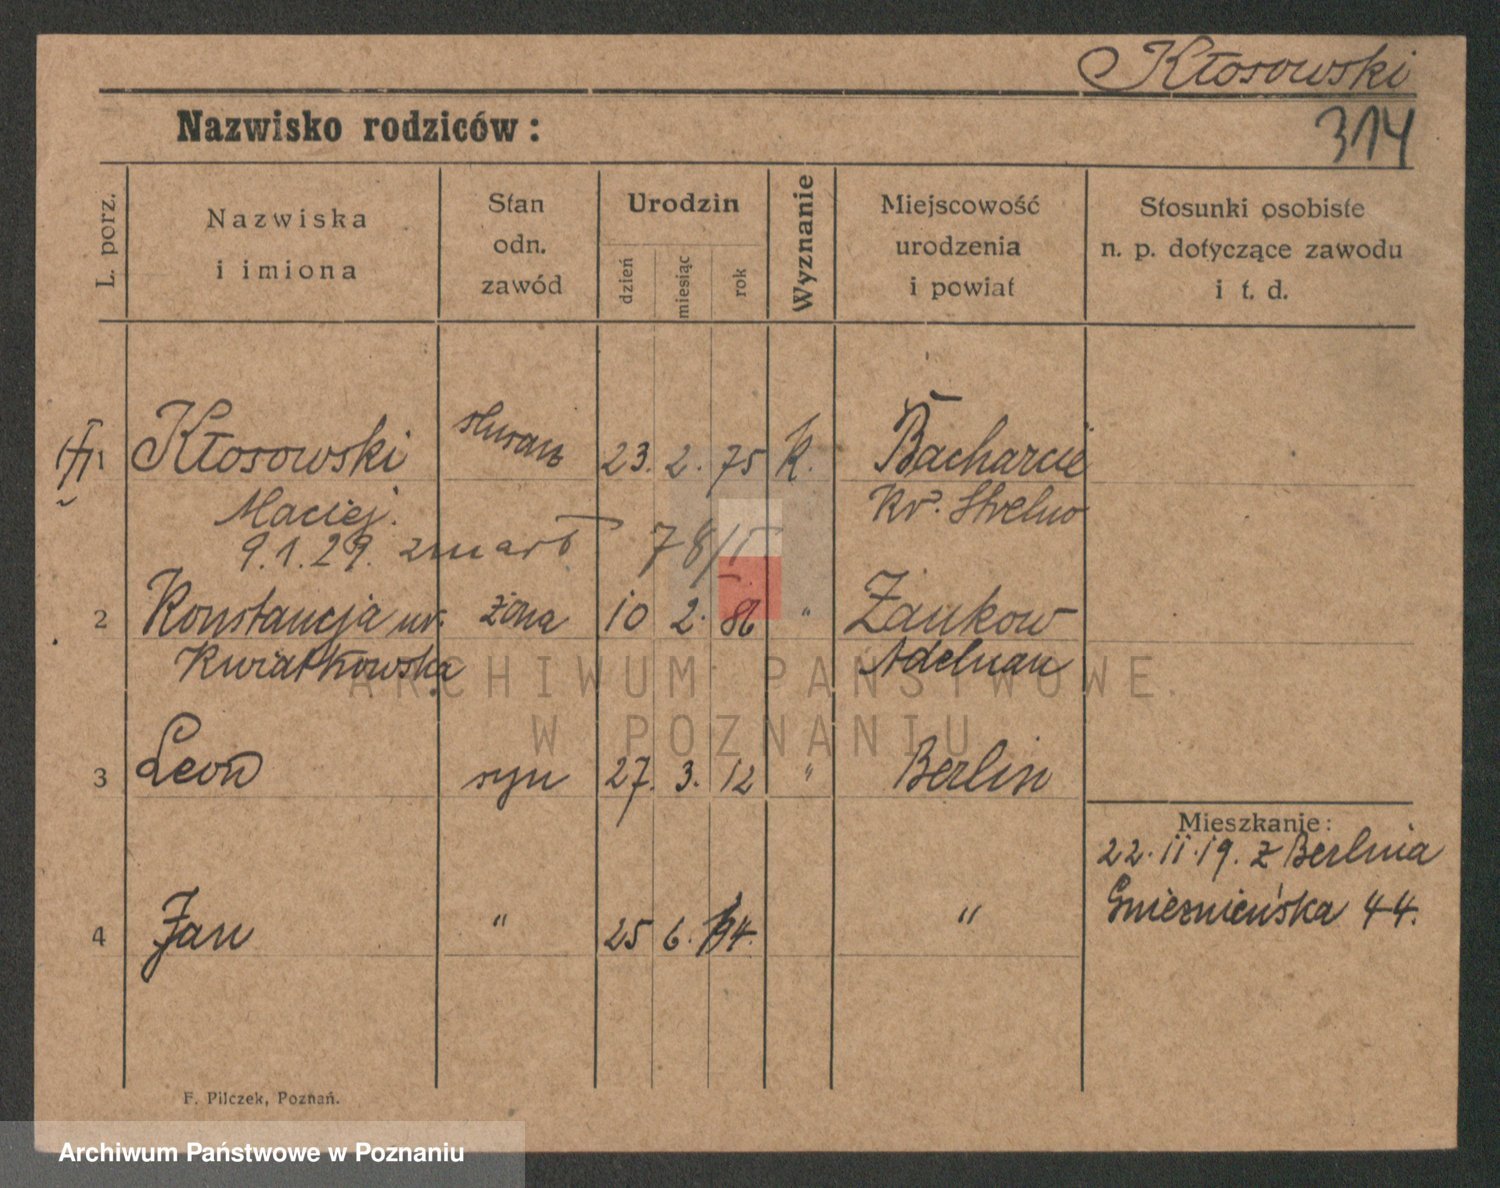 Kłosowski
Nazwisko rodziców:
314
L. porz.
Nazwiska
i imiona
Stan
odn.
zawód
Urodzin
dzień
miesiąc
rok
Wyznanie
Miejscowość
urodzenia
i powiat
Stosunki osobiste
n. p. dotyczące zawodu
i t. d.
1 Kłosowski 23. 2. 75 k.
Maciej. Kr. Strelno
9.1.29. zmarł 78/I
2 Konstancja ur. żona 10 2. 86 " Żankow
Kwiatkowska Adelnau
ARCHIWUM PAŃSTWOWE
W POZNANIU
3 Leon syn 27. 3. 12 " Berlin
Mieszkanie:
22.II.19. z Berlina
Gnieźnieńska 44.
4 Jan " 25 6. 14. "
F. Pilczek, Poznań.
Archiwum Państwowe w Poznaniu